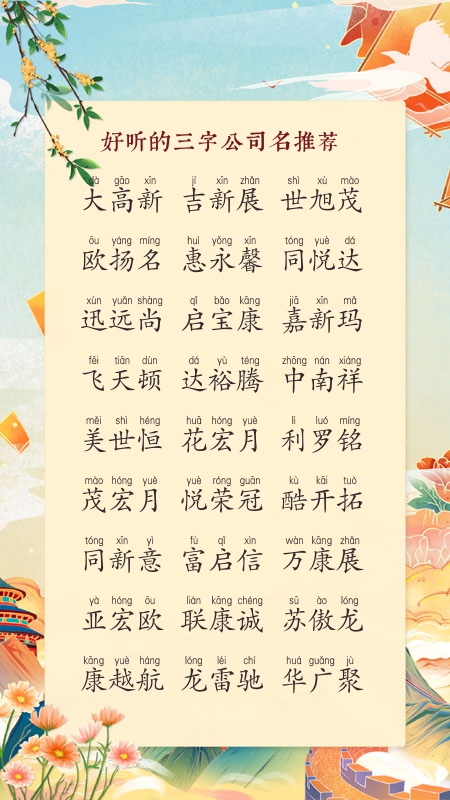 好听的三字公司名推荐
dà gāo xīn jí xīn zhǎn shì xù mào
大高新 吉新展 世旭茂
ōu yáng míng huì yǒng xīn tóng yuè dá
欧扬名 惠永馨 同悦达
xùn yuǎn shàng qǐ bǎo kāng jiā xīn mǎ
迅远尚 启宝康 嘉新玛
fēi tiān dùn dá yù téng zhōng nán xiáng
飞天顿 达裕腾 中南祥
měi shì héng huā hóng yuè lì luó míng
美世恒 花宏月 利罗铭
mào hóng yuè yuè róng guān kù kāi tuò
茂宏月 悦荣冠 酷开拓
tóng xīn yì fù qǐ xìn wàn kāng zhǎn
同新意 富启信 万康展
yà hóng ōu lián kāng chéng sū ào lóng
亚宏欧 联康诚 苏傲龙
kāng yuè háng lóng léi chí huá guǎng jù
康越航 龙雷驰 华广聚